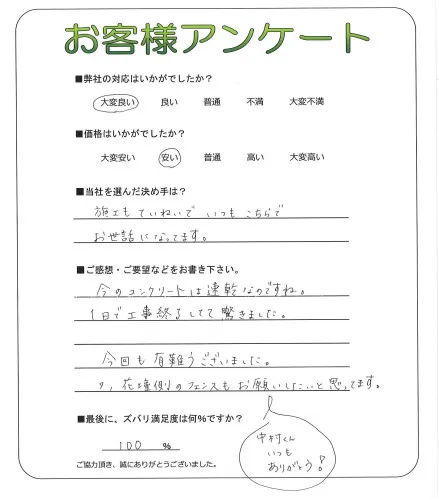 お客様アンケート
■弊社の対応はいかがでしたか?
大変良い 良い 普通 不満 大変不満
■価格はいかがでしたか?
大変安い 安い 普通 高い 大変高い
■当社を選んだ決め手は?
施工もていねいで いつも こちらで
お世話になってます。
■ご感想・ご要望などをお書き下さい。
今のコンクリートは速乾なのですね。
1日で工事終了してて驚きました。
今回も有難うございました。
花壇側のフェンスもお願いしたいと思ってます。
■最後に、ズバリ満足度は何%ですか?
100 %
中村くん
いつも
ありがとう!
ご協力頂き、誠にありがとうございました。